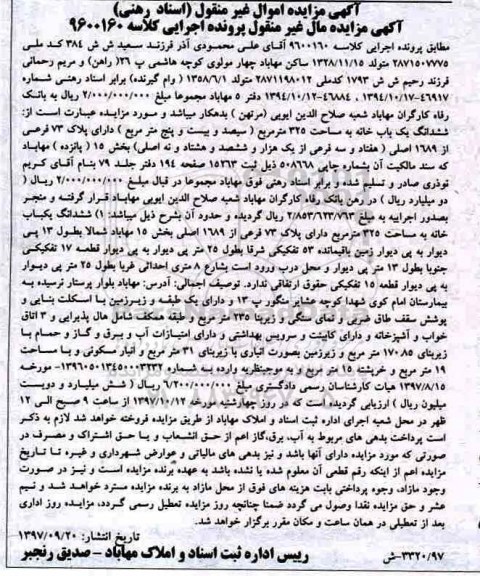 آگهی مزایده اموال غیر منقول (اسناد رهنی)
آگهی مزایده مال غیر منقول پرونده اجرایی کلاسه ۹۶۰۰۱۶۰
مطابق پرونده اجرایی کلاسه ۹۶۰۰۱۶۰ آقای علی محمودی آذر فرزند سعید ش ش ۳۸۴ کد ملی
۲۸۷۱۵۰۷۷۷۵ متولد ۱۳۲۸/۱۱/۱۵ ساکن مهاباد چهار مولوی کوچه هاشمی پ ۲۶ (راهن) و مریم رحمانی
فرزند رحیم ش ش ۱۷۹۳ کدملی ۲۸۷۱۱۹۸۰۱۲ متولد ۱۳۵۸/۶/۱ ( وام گیرنده) برابر اسناد رهنی شماره
۴۶۹۱۷-۱۳۹۴/۱۰/۱۷ ، ۴۶۸۸۴-۱۳۹۴/۱۰/۱۲ دفتر ۵ مهاباد مجموعا مبلغ ۲/۰۰۰/۰۰۰/۰۰۰ ریال به بانک
رفاه کارگران مهاباد شعبه صلاح الدین ایوبی (مرتهن ) بدهکار میباشد و مورد مزایده عبارت است از:
ششدانگ یک باب خانه به مساحت ۳۲۵ مترمربع ( سیصد و بیست و پنج متر مربع ) دارای پلاک ۷۳ فرعی
از ۱۶۸۹ اصلی ( هفتاد و سه فرعی از یک هزار و ششصد و هشتاد و نه اصلی) بخش ۱۵ ( پانزده ) مهاباد
که سند مالکیت آن بشماره چاپی ۵۰۸۶۶۸ ذیل ثبت ۱۵۲۶۳ صفحه ۱۹۴ دفتر جلد ۷۹ بنام آقای کریم
توذری صادر و تسلیم شده و برابر اسناد رهنی فوق مهاباد مجموعا در قبال مبلغ ۲/۰۰۰/۰۰۰/۰۰۰ ریال (
دو میلیارد ریال ) در رهن بانک رفاه کارگران مهاباد شعبه صلاح الدین ایوبی مهاباد قرار گرفته و منجر
بصدور اجراییه به مبلغ ۲/۸۵۳/۶۲۳/۷۶۳ ریال گردیده و حدود آن بشرح ذیل میباشد: ۱) ششدانگ یکباب
خانه به مساحت ۳۲۵ مترمربع دارای پلاک ۷۳ فرعی از ۱۶۸۹ اصلی بخش ۱۵ مهاباد شمالا بطول ۱۳ پی
دیوار به پی دیوار زمین باقیمانده ۵۳ تفکیکی شرقا بطول ۲۵ متر پی دیوار به پی دیوار قطعه ۱۷ تفکیکی
جنوبا بطول ۱۳ متر پی دیوار و محل درب ورود است بشارع ۸ متری احداثی غربا بطول ۲۵ متر پی دیوار
به پی دیوار قطعه ۱۵ تفکیکی حقوق ارتفاقی ندارد. توصیف اجمالی: آدرس: مهاباد بلوار پرستار نرسیده به
بیمارستان امام کوی شهدا کوچه عشایر منگور پ ۱۳ و دارای یک طبقه و زیرزمین با اسکلت بنایی و
پوشش سقف طاق ضربی و نمای سنگی و زیربنا ۲۳۵ متر مربع و طبقه همکف شامل هال پذیرایی و ۳ اتاق
خواب و آشپزخانه و دارای کابینت و سرویس بهداشتی و دارای امتیازات آب و برق و گاز و حمام با
زیربنای ۱۷۰.۸۵ متر مربع و زیرزمین بصورت انباری با زیربنای ۳۱ متر مربع و انبار مسکونی و با مساحت
۱۹ متر مربع و خرپشته ۱۵ متر مربع و به موجبنظریه وارده به شماره ۱۳۹۶۰۵۰۱۳۴۵۰۰۰۳۲۳۲- مورخه
۱۳۹۷/۸/۱۵ هیات کارشناسان رسمی دادگستری مبلغ ۶/۲۰۰/۰۰۰/۰۰۰ ریال ( شش میلیارد و دویست
میلیون ریال ) ارزیابی گردیده، است که در روز چهارشنبه مورخه ۱۳۹۷/۱۰/۱۲ از ساعت ۹ صبح الی ۱۲
ظهر در محل شعبه اجرای اداره ثبت اسناد و املاک مهاباد از طریق مزایده فروخته خواهد شد لازم به ذکر
است پرداخت بدهی های مربوط به آب، برق،گاز اعم از حق انشعاب و یا حق اشتراک و مصرف در
صورتی که مورد مزایده دارای آنها باشد و نیز بدهی های مالیاتی و عوارض شهرداری و غیره تا تاریخ
مزایده اعم از اینکه رقم قطعی آن معلوم شده یا نشده باشد به عهده برنده مزایده است و نیز در صورت
وجود مازاد، وجوه پرداختی بابت هزینه های فوق از محل مازاد به برنده مزایده مسترد خواهد شد و نیم
عشر و حق مزایده نقدا وصول می گردد ضمنا چنانچه روز مزایده تعطیل رسمی گردد، مزایده روز اداری
بعد از تعطیلی در همان ساعت و مکان مقرر برگزار خواهد شد.
تاریخ انتشار: ۱۳۹۷/۰۹/۲۰
رییس اداره ثبت اسناد و املاک مهاباد - صدیق رنجبر
۳۳۲۰/۹۷-ش